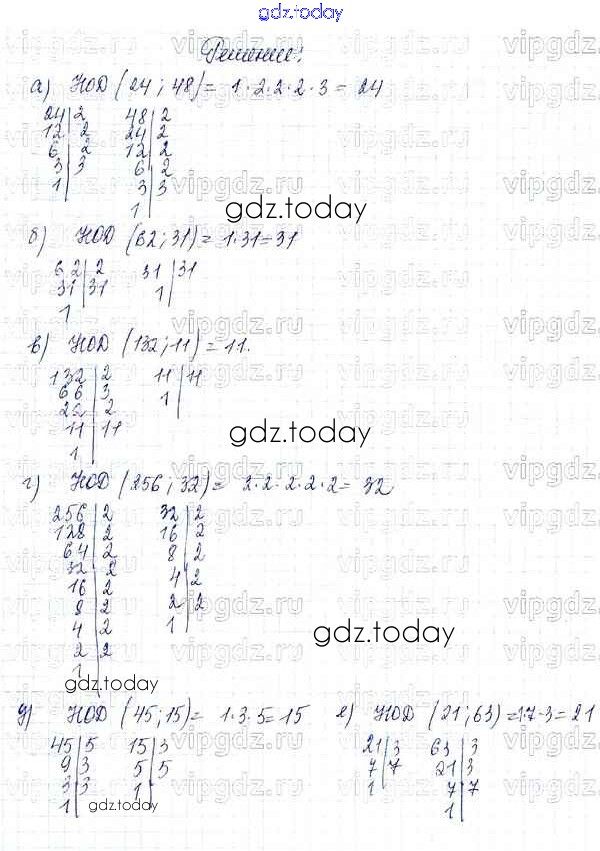 gdz.today
Решение:
а) НОД (24; 48) = 1·2·2·2·3 = 24
24|2 48|2
12|2 24|2
6|2 12|2
3|3 6|2
1| 3|3
1|
gdz.today
б) НОД (62; 31) = 1·31=31
62|2 31|31
31|31 1|
1|
в) НОД (132; 11) = 11.
132|2 11|11
66|3 1|
22|2
11|11
1|
gdz.today
г) НОД (256; 32) = 2·2·2·2·2= 32
256|2 32|2
128|2 16|2
64|2 8|2
32|2 4|2
16|2 2|2
8|2 1|
4|2
2|2
1|
gdz.today
gdz.today
д) НОД (45; 15) = 1·3·5=15 е) НОД (21; 63) =1·7·3= 21
45|5 15|3 21|3 63|3
9|3 5|5 7|7 21|3
3|3 1| 1| 7|7
1| 1|
gdz.today
vipgdz.ru